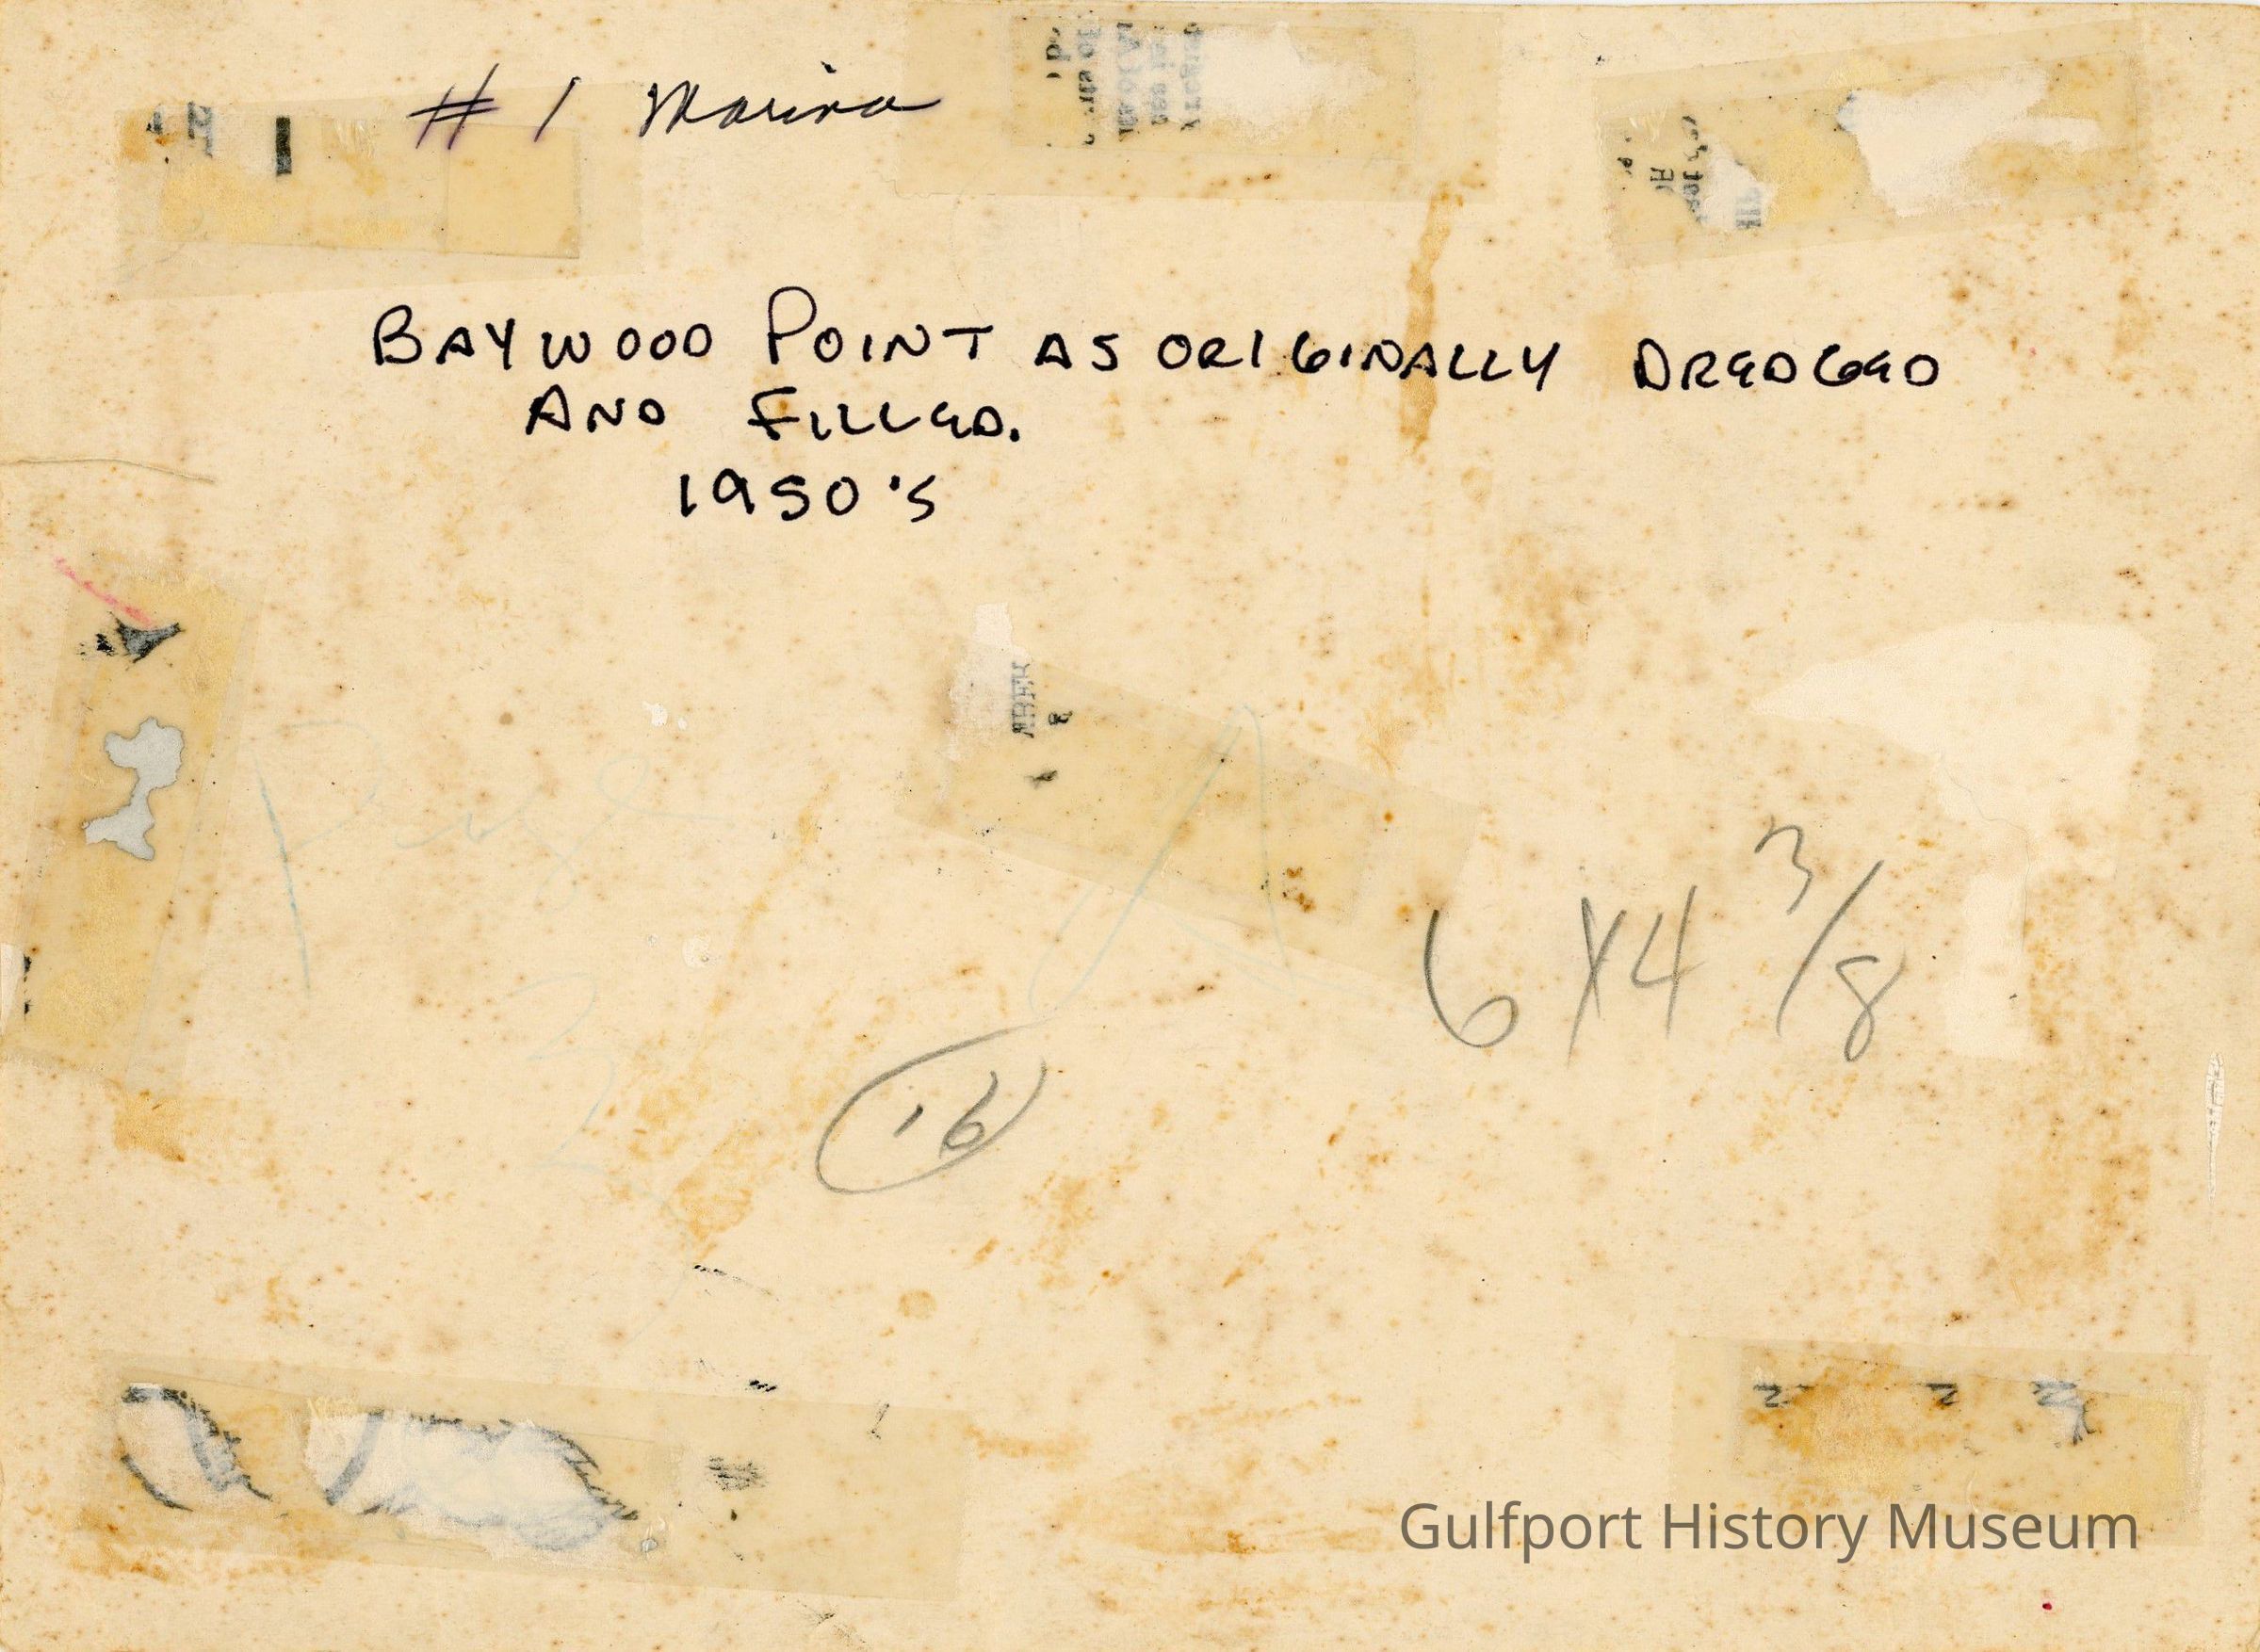 # 1 Marina
BAYWOOD POINT AS ORIGINALLY DREDGED
AND FILLED.
1950's
Page
3
6 x 4 3/8
16
Gulfport History Museum